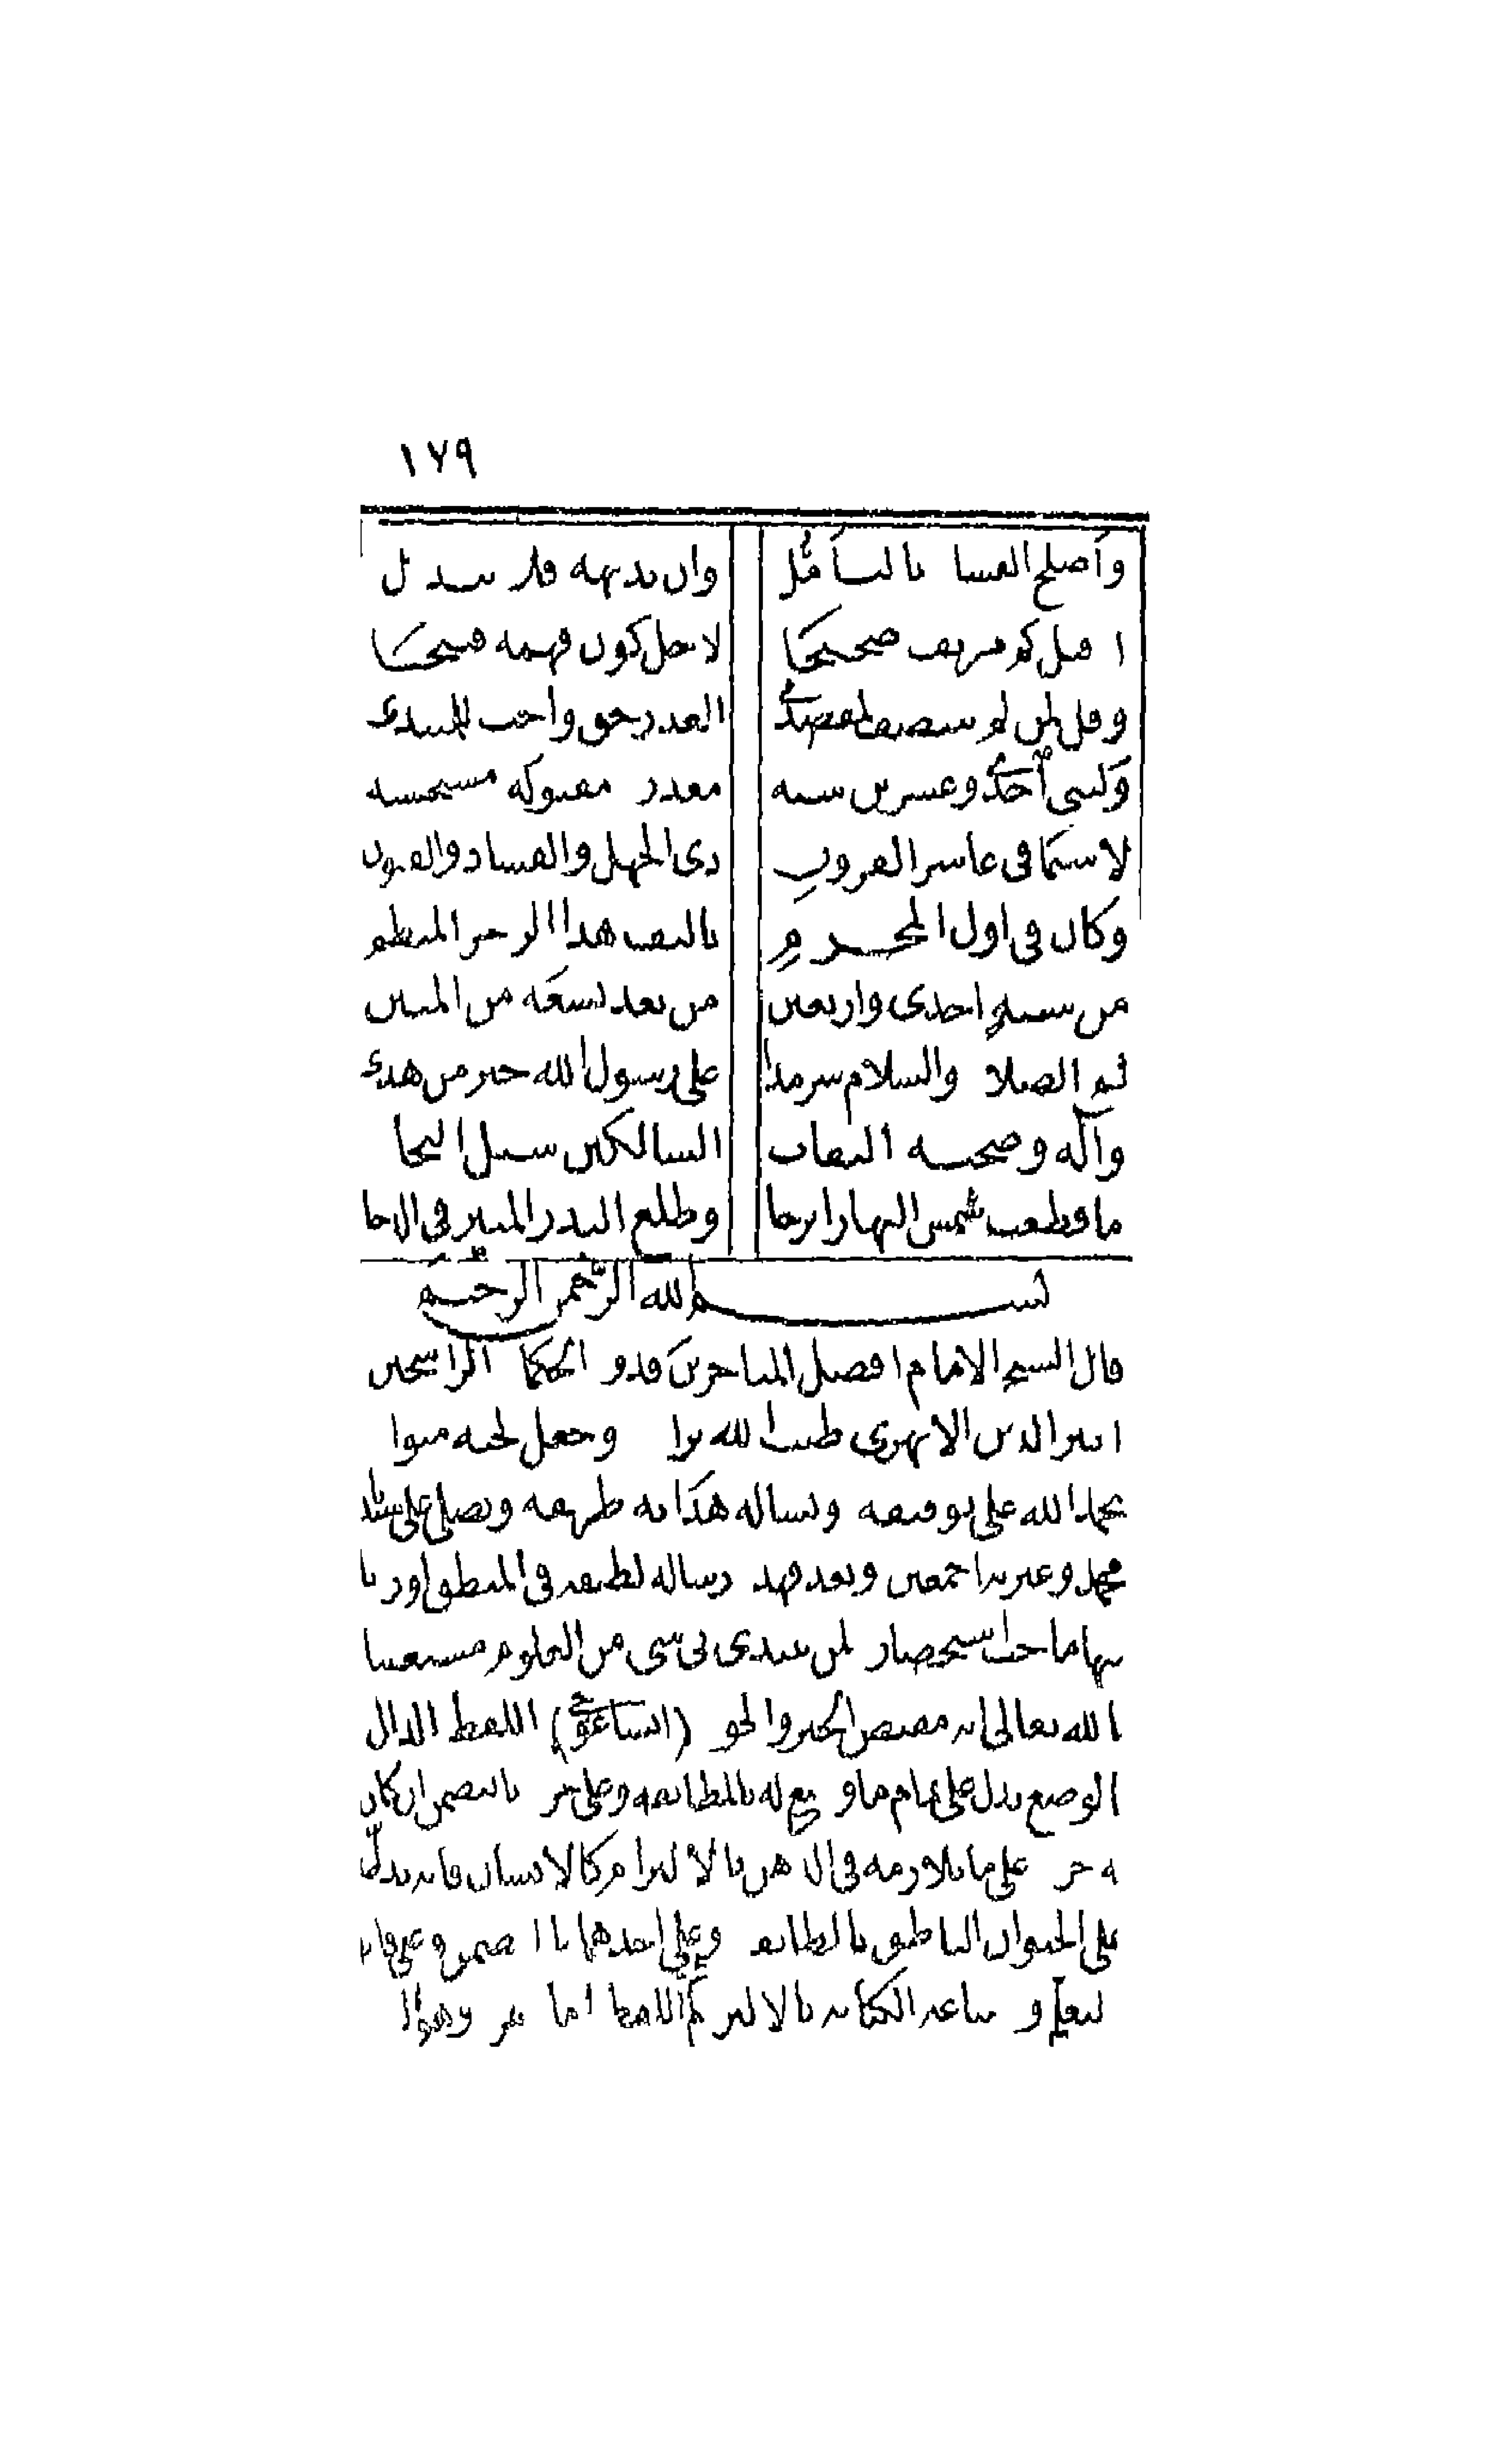 ١٧٩
وأصلح الفسا بالتأمُّل وان بديهة فلا تبدل
اذ قيل كم مزيف صحيحًا لاجل كون فهمه قبيحًا
وقل لمن لم ينتصف لمقصدي العذر حق واجب للمبتدي
ولبني أحدى وعشرين سنه معذرة مقبولة مستحسنه
لا سيما في عاشر القرون ذي الجهل والفساد والفنون
وكان في اول المحرم تاليف هذا الرجز المنظم
من سنة احدى واربعين من بعد تسعة من المئين
ثم الصلاة والسلام سرمدا على رسول الله خير من هدى
وآله وصحبه الثقات السالكين سبل النجا
ما قطعت شمس النهار ابرجا وطلع البدر المنير في الدجا
بسم الله الرحمن الرحيم
قال الشيخ الامام افضل المتاخرين قدوة الحكما الراسخين
اثير الدين الابهرى طيب الله ثرا وجعل الجنة مثوا
نحمد الله على توفيقه ونساله هداية طريقه ونصلى على سيدنا
محمد وعترته اجمعين وبعد فهذه رسالة لطيفة في المنطق اوردنا
فيها ما يجب استحضار لمن يبتدى في شى من العلوم مستعينا
بالله تعالى انه مفيض الخير والجو (ايساغوجى) اللفظ الدال
بالوضع يدل على تمام ما وضع له بالمطابقة وعلى جز بالتضمن ان كان
له جز على ما يلازمه في الذهن بالالتزام كالانسان فانه يدل
على الحيوان الناطق بالمطابقة وعلى احدهما بالتضمن وعلى قابل
العلم و صناعة الكتابة بالالتزام ثم اللفظ اما مفرد وهو الذ